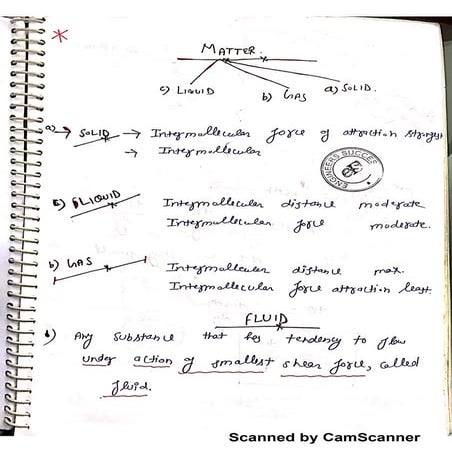 *
MATTER.
c) LIQUID b) GAS a) SOLID.
a) → SOLID → Intermollecular force of attraction strongest
→ Intermollecular
ENGINEERS SUCCEE
c) LIQUID Intermollecular distance moderate
Intermollecular force moderate.
b) GAS Intermollecular distance max.
Intermollecular force attraction least.
FLUID
Any substance that has tendency to flow
under action of smallest shear force, called
fluid.
Scanned by CamScanner